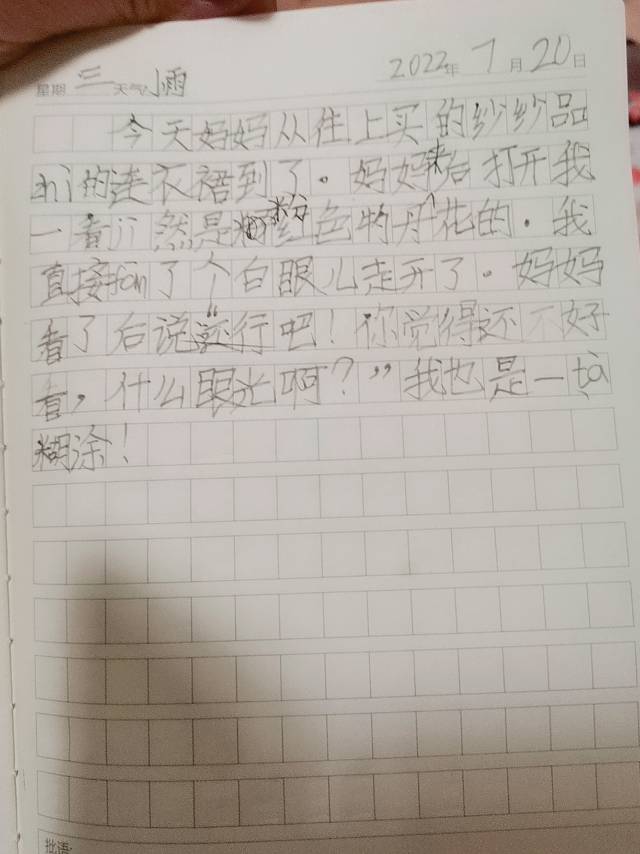 星期 三 天气 小雨 2022年 7月 20日
今天妈妈从住上买的纱纱品
zhi的连衣裙到了。妈妈来后打开我
一看ji然是粉红色牡丹花的。我
直接fān了个白眼儿走开了。妈妈
看了后说“还行吧！你觉得还不好
看，什么眼光啊？”我也是一tà
糊涂！
批语: